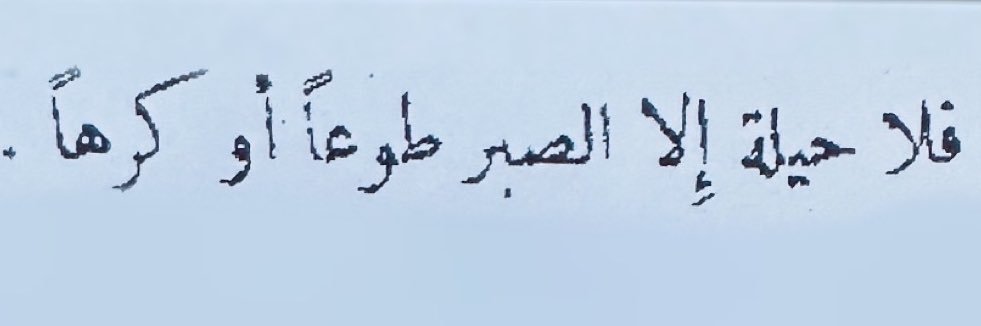 فلا حيلة إلا الصبر طوعاً أو كرهاً .